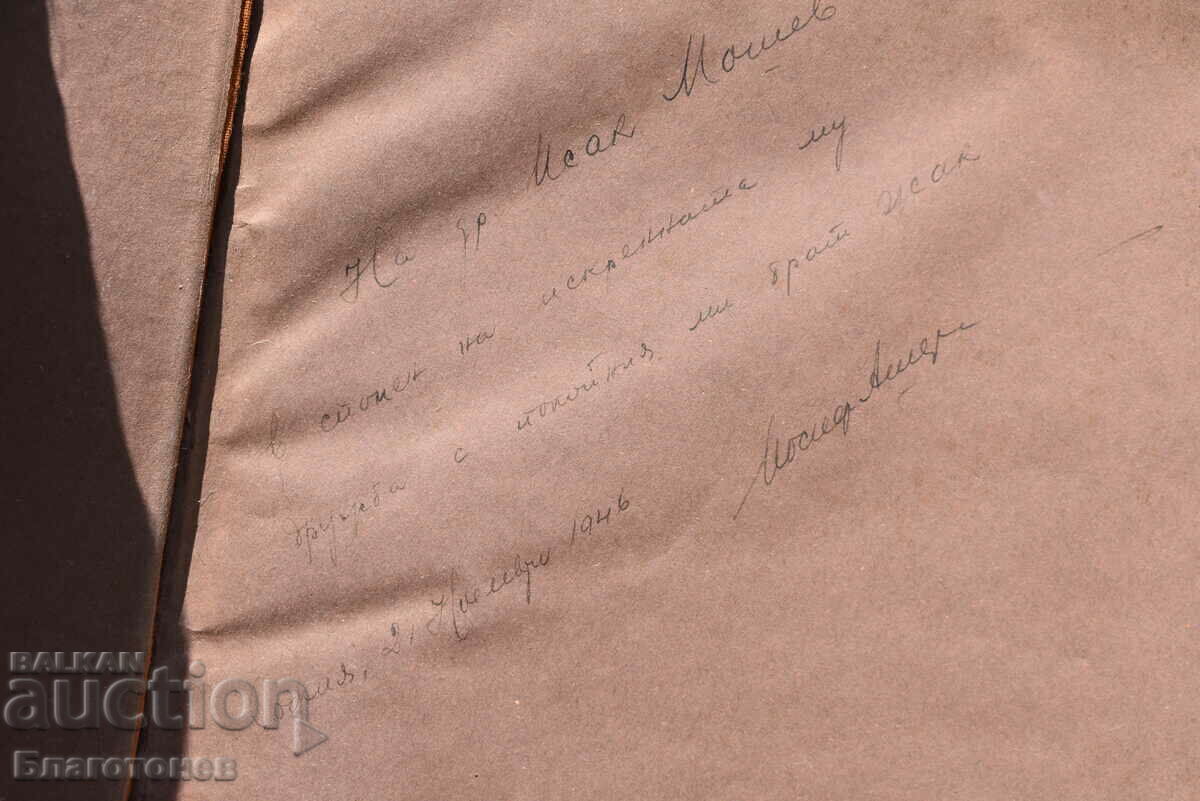 На др. Исак Мошев
в спомен на искрената му
дружба с покойния ми брат Жак
Йосиф Ашер
София, 2, Ноември 1946
BALKAN
auction
Благотонев